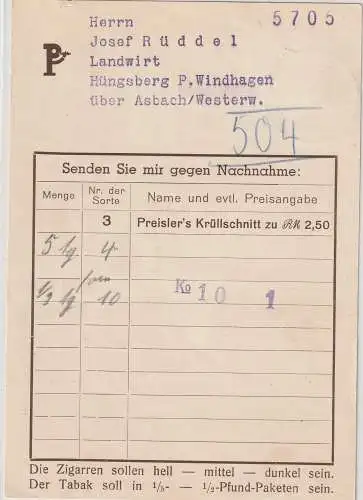 Herrn 5705
Josef Rüddel
Landwirt
Hüngsberg P.Windhagen
über Asbach/Westerw.
P
504
Senden Sie mir gegen Nachnahme:
Menge Nr. der Sorte Name und evtl. Preisangabe
3 Preisler's Krüllschnitt zu RM 2,50
5 4
10 Ko 10 1
Die Zigarren sollen hell — mittel — dunkel sein.
Der Tabak soll in ¹/₅- — ¹/₂-Pfund-Paketen sein.